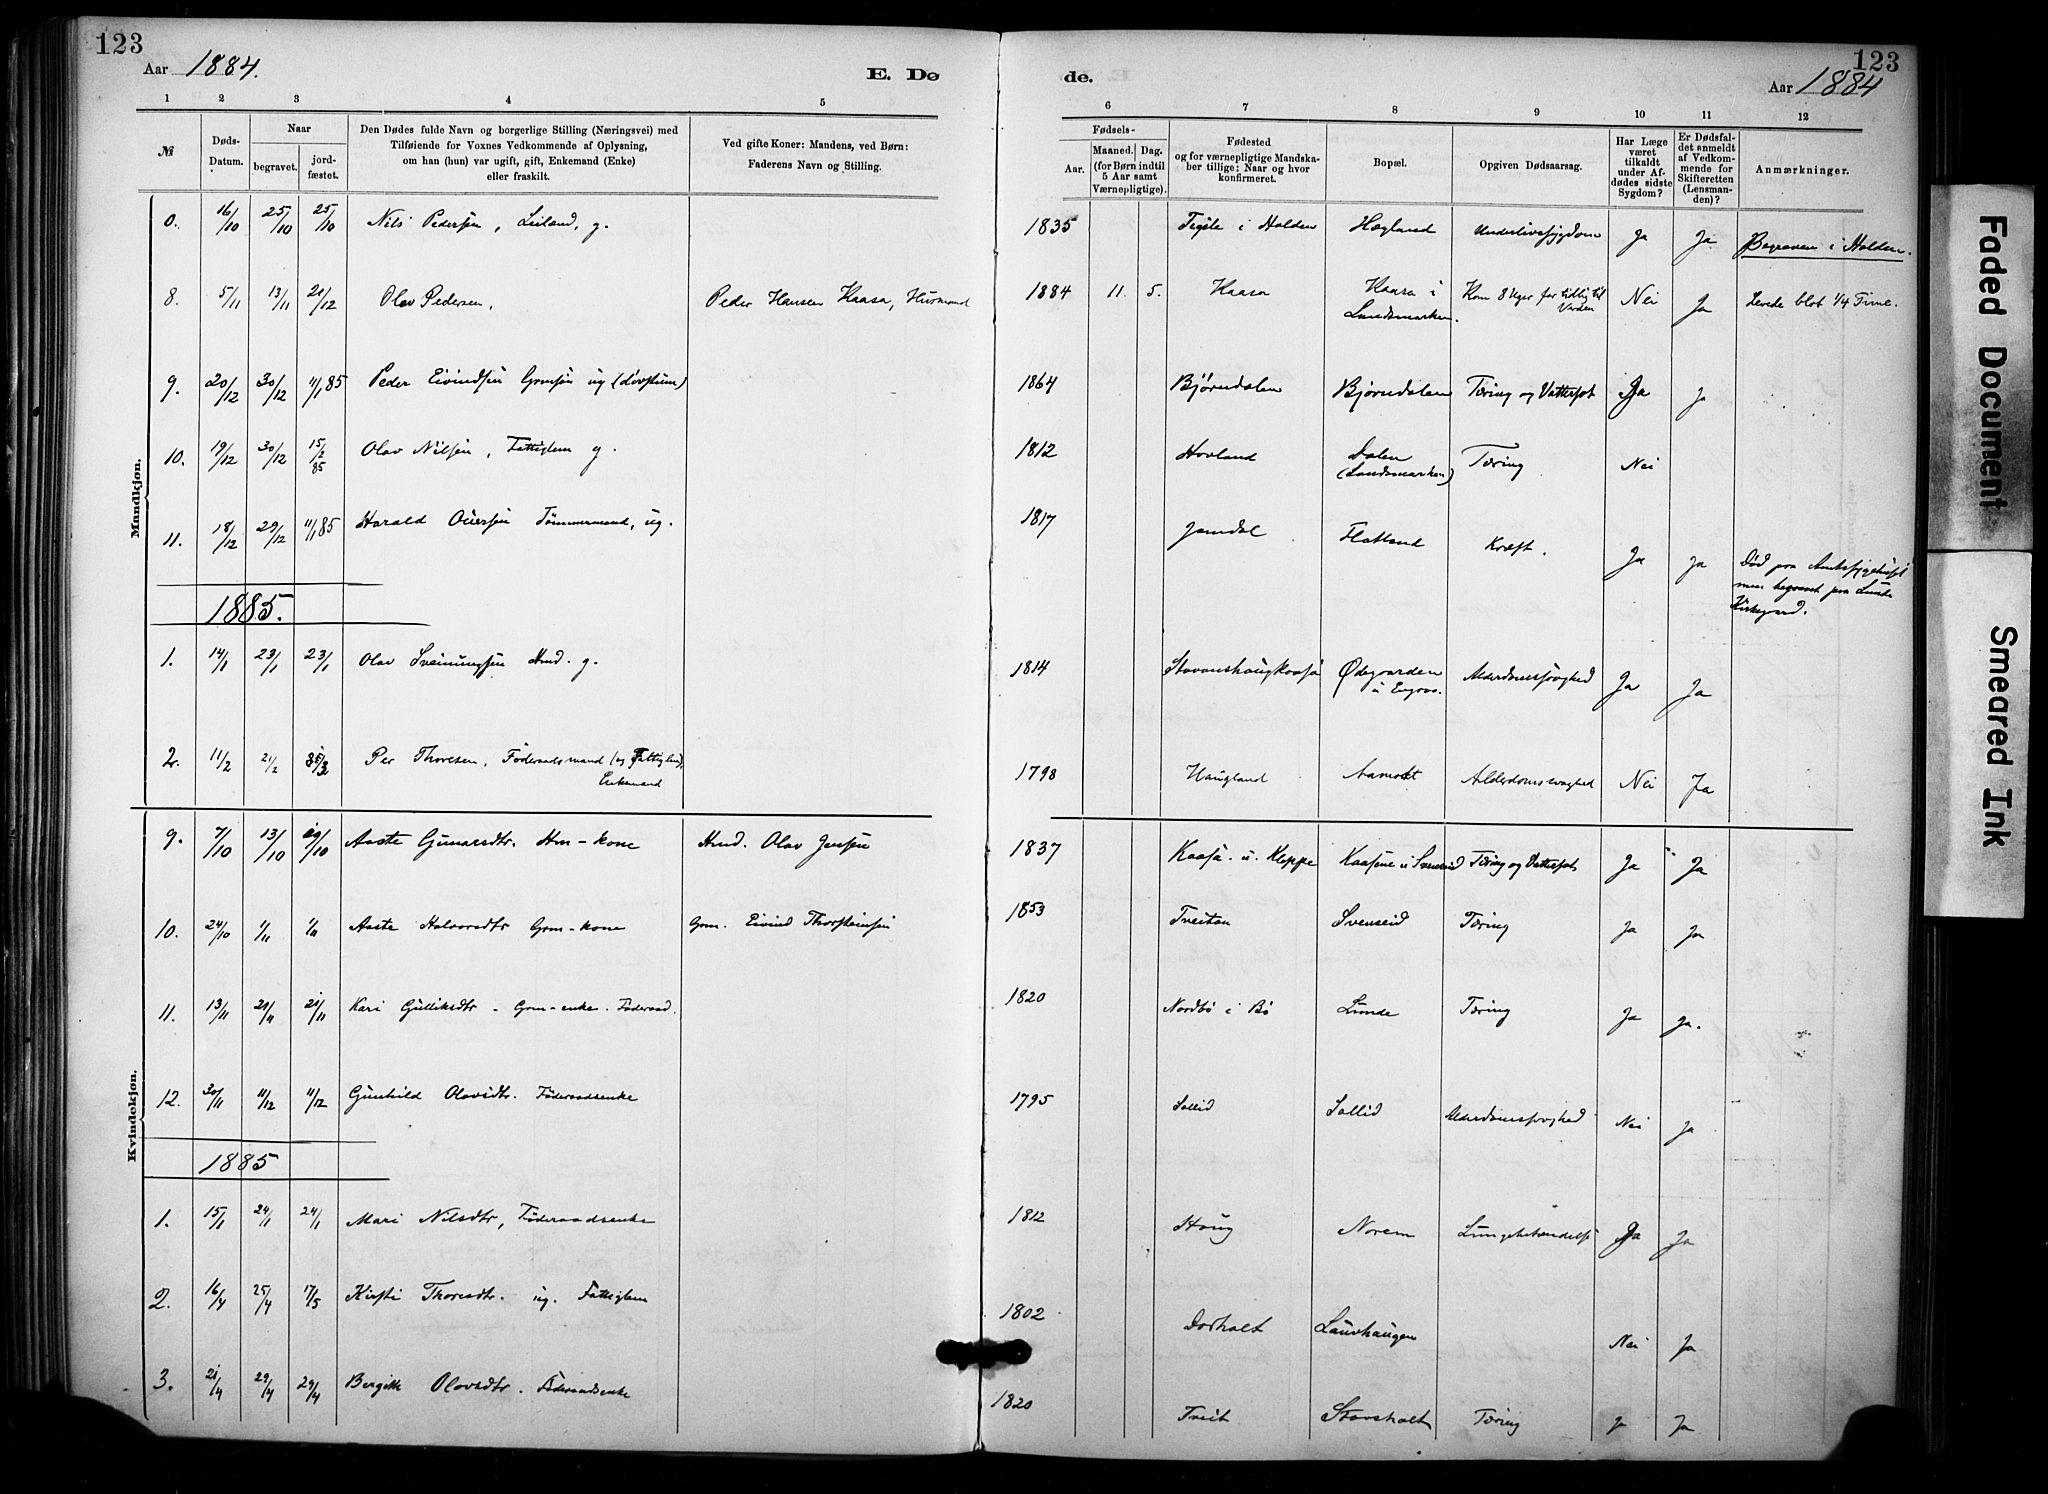 123
Aar 1884.
E. Dø
de.
123
Aar 1884
1 2 3 4 5
6 7 8 9 10 11 12
№
Døds-Datum.
Naar
begravet.
jordfæstet.
Den Dødes fulde Navn og borgerlige Stilling (Næringsvei) med
Tilføiende for Voxnes Vedkommende af Oplysning,
om han (hun) var ugift, gift, Enkemand (Enke)
eller fraskilt.
Ved gifte Koner: Mandens, ved Børn:
Faderens Navn og Stilling.
Fødsels-
Aar.
Maaned. Dag.
(for Børn indtil
5 Aar samt
Værnepligtige).
Fødested
og for værnepligtige Mandska-
ber tillige: Naar og hvor
konfirmeret.
Bopæl.
Opgiven Dødsaarsag.
Har Læge
været
tilkaldt
under Af-
dødes sidste
Sygdom?
Er Dødsfal-
det anmeldt
af Vedkom-
mende for
Skifteretten
(Lensman-
den)?
Anmærkninger.
Mandkjøn.
0. 16/10 25/10 25/10 Nils Pedersen, Leiland, g. 1835 i Holden Hægland Underlivssygdom Ja Ja Begraven i Holden.
8. 5/11 13/11 21/12 Olav Pedersen, Peder Hansen Kaasa, Husmand 1884 11. 5. Kaasa Kaasa i Landsmarken. Kom 8 Uger for tidlig til Verden Nei Ja Levede blot 1/4 Time.
9. 20/12 30/12 11/1 85 Peder Eivindsen Grmsøn ug 1864 Bjørndalen Bjørndalen Tæring og Vattersot Ja Ja
10. 19/12 30/12 15/2 85 Olav Nilsen, Fattiglem g. 1812 Hovland Dalen (Landsmarken) Tæring Nei
11. 18/12 29/12 11/1 85 Harald Tømmermand, ug. 1817 Jamdal Flatland Kræft. Ja Ja Død paa Amtssygehuset
men begravet paa Lunde
Kirkegaard.
1885.
1. 14/1 23/1 23/1 Olav Sveinungsen Hmd. g. 1814 Ødegaarden u Alderdomssvaghed Ja Ja
2. 11/2 21/2 Per Thoresen, Føderaadsmand (og Fattiglem), Enkemand 1798 Haugland Aamodt Alderdomssvaghed Nei Ja
Kvindekjøn.
9. 7/10 13/10 19/10 Aaste Gunarsdtr. Hm-kone Hmd. Olav Jensen 1837 Kaasa. u. Kleppe Kaasene u Svenseid Tæring og Vattersot Ja Ja
10. 24/10 1/11 1/11 Aaste Halvorsdtr Grm-kone Grm. Eivind Thorsteinsen 1853 Treitan Svenseid Tæring Ja Ja
11. 13/11 21/11 21/11 Kari Gulliksdtr - Grm-enke. Føderaad. 1820 Nordbø i Bø Lunde Tæring Ja Ja.
12. 30/11 11/12 11/12 Gunhild Olavsdtr. Føderaadsenke 1795 Sollid Sollid Alderdomssvaghed Nei Ja
1885
1. 15/1 24/1 24/1 Mari Nilsdtr, Føderaadsenke 1812 Haug Norem Lungebetændelse Ja Ja
2. 16/4 25/4 17/5 Kirsti Thoresdtr. ug. Fattiglem 1802 Dorholt Laurhaugen Nei Ja
3. 21/4 29/4 29/4 Bergitte Olavsdtr. Føderaadsenke 1820 Treit Stavsholt Tæring Ja Ja
Faded Document
Smeared Ink